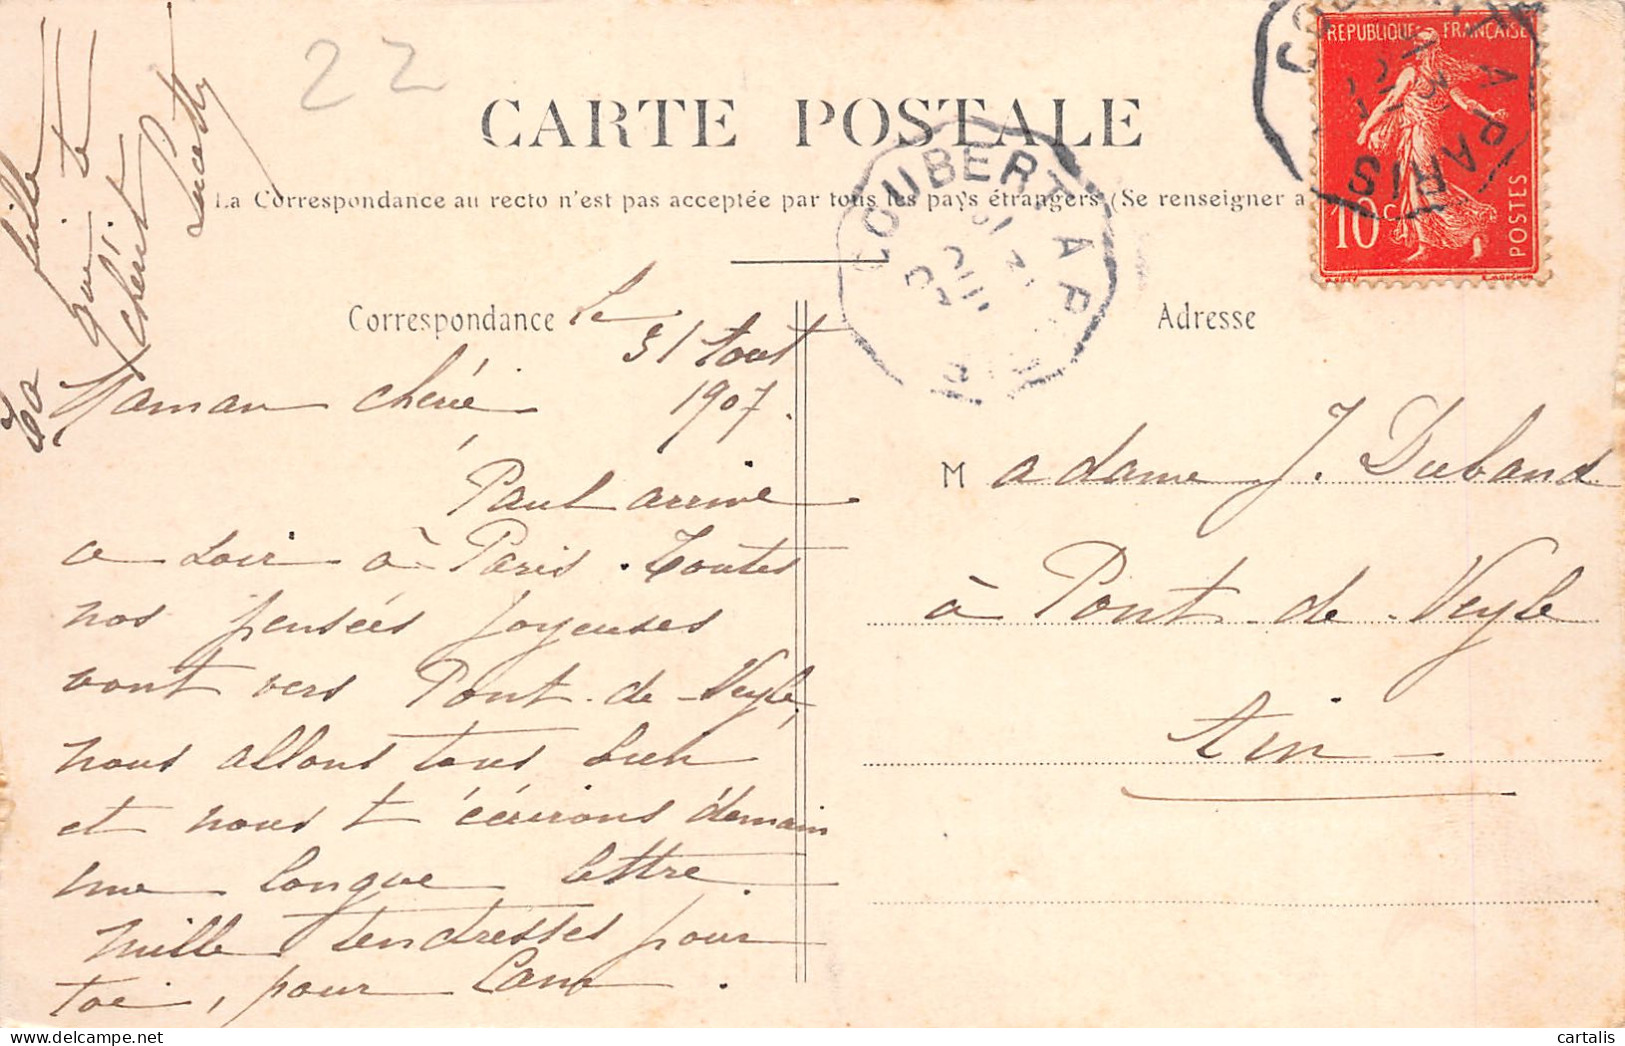 22
CARTE POSTALE
La Correspondance au recto n'est pas acceptée par tous les pays étrangers (Se renseigner a
REPUBLIQUE FRANÇAISE
10 c.
POSTES
A PARIS
COUBERT A P
Correspondance
Adresse
le
31 Aout
1907.
Maman chérie
Paul arrive
ce soir à Paris. Toutes
nos pensées joyeuses
vont vers Pont-de-Veyle,
nous allons tous bien
et nous t'écrirons demain
une longue lettre.
Mille tendresses pour
toi, pour
Ta fille
qui te
chérit
Madame J. Duband
à Pont-de-Veyle
Ain
cartalis
www.delcampe.net